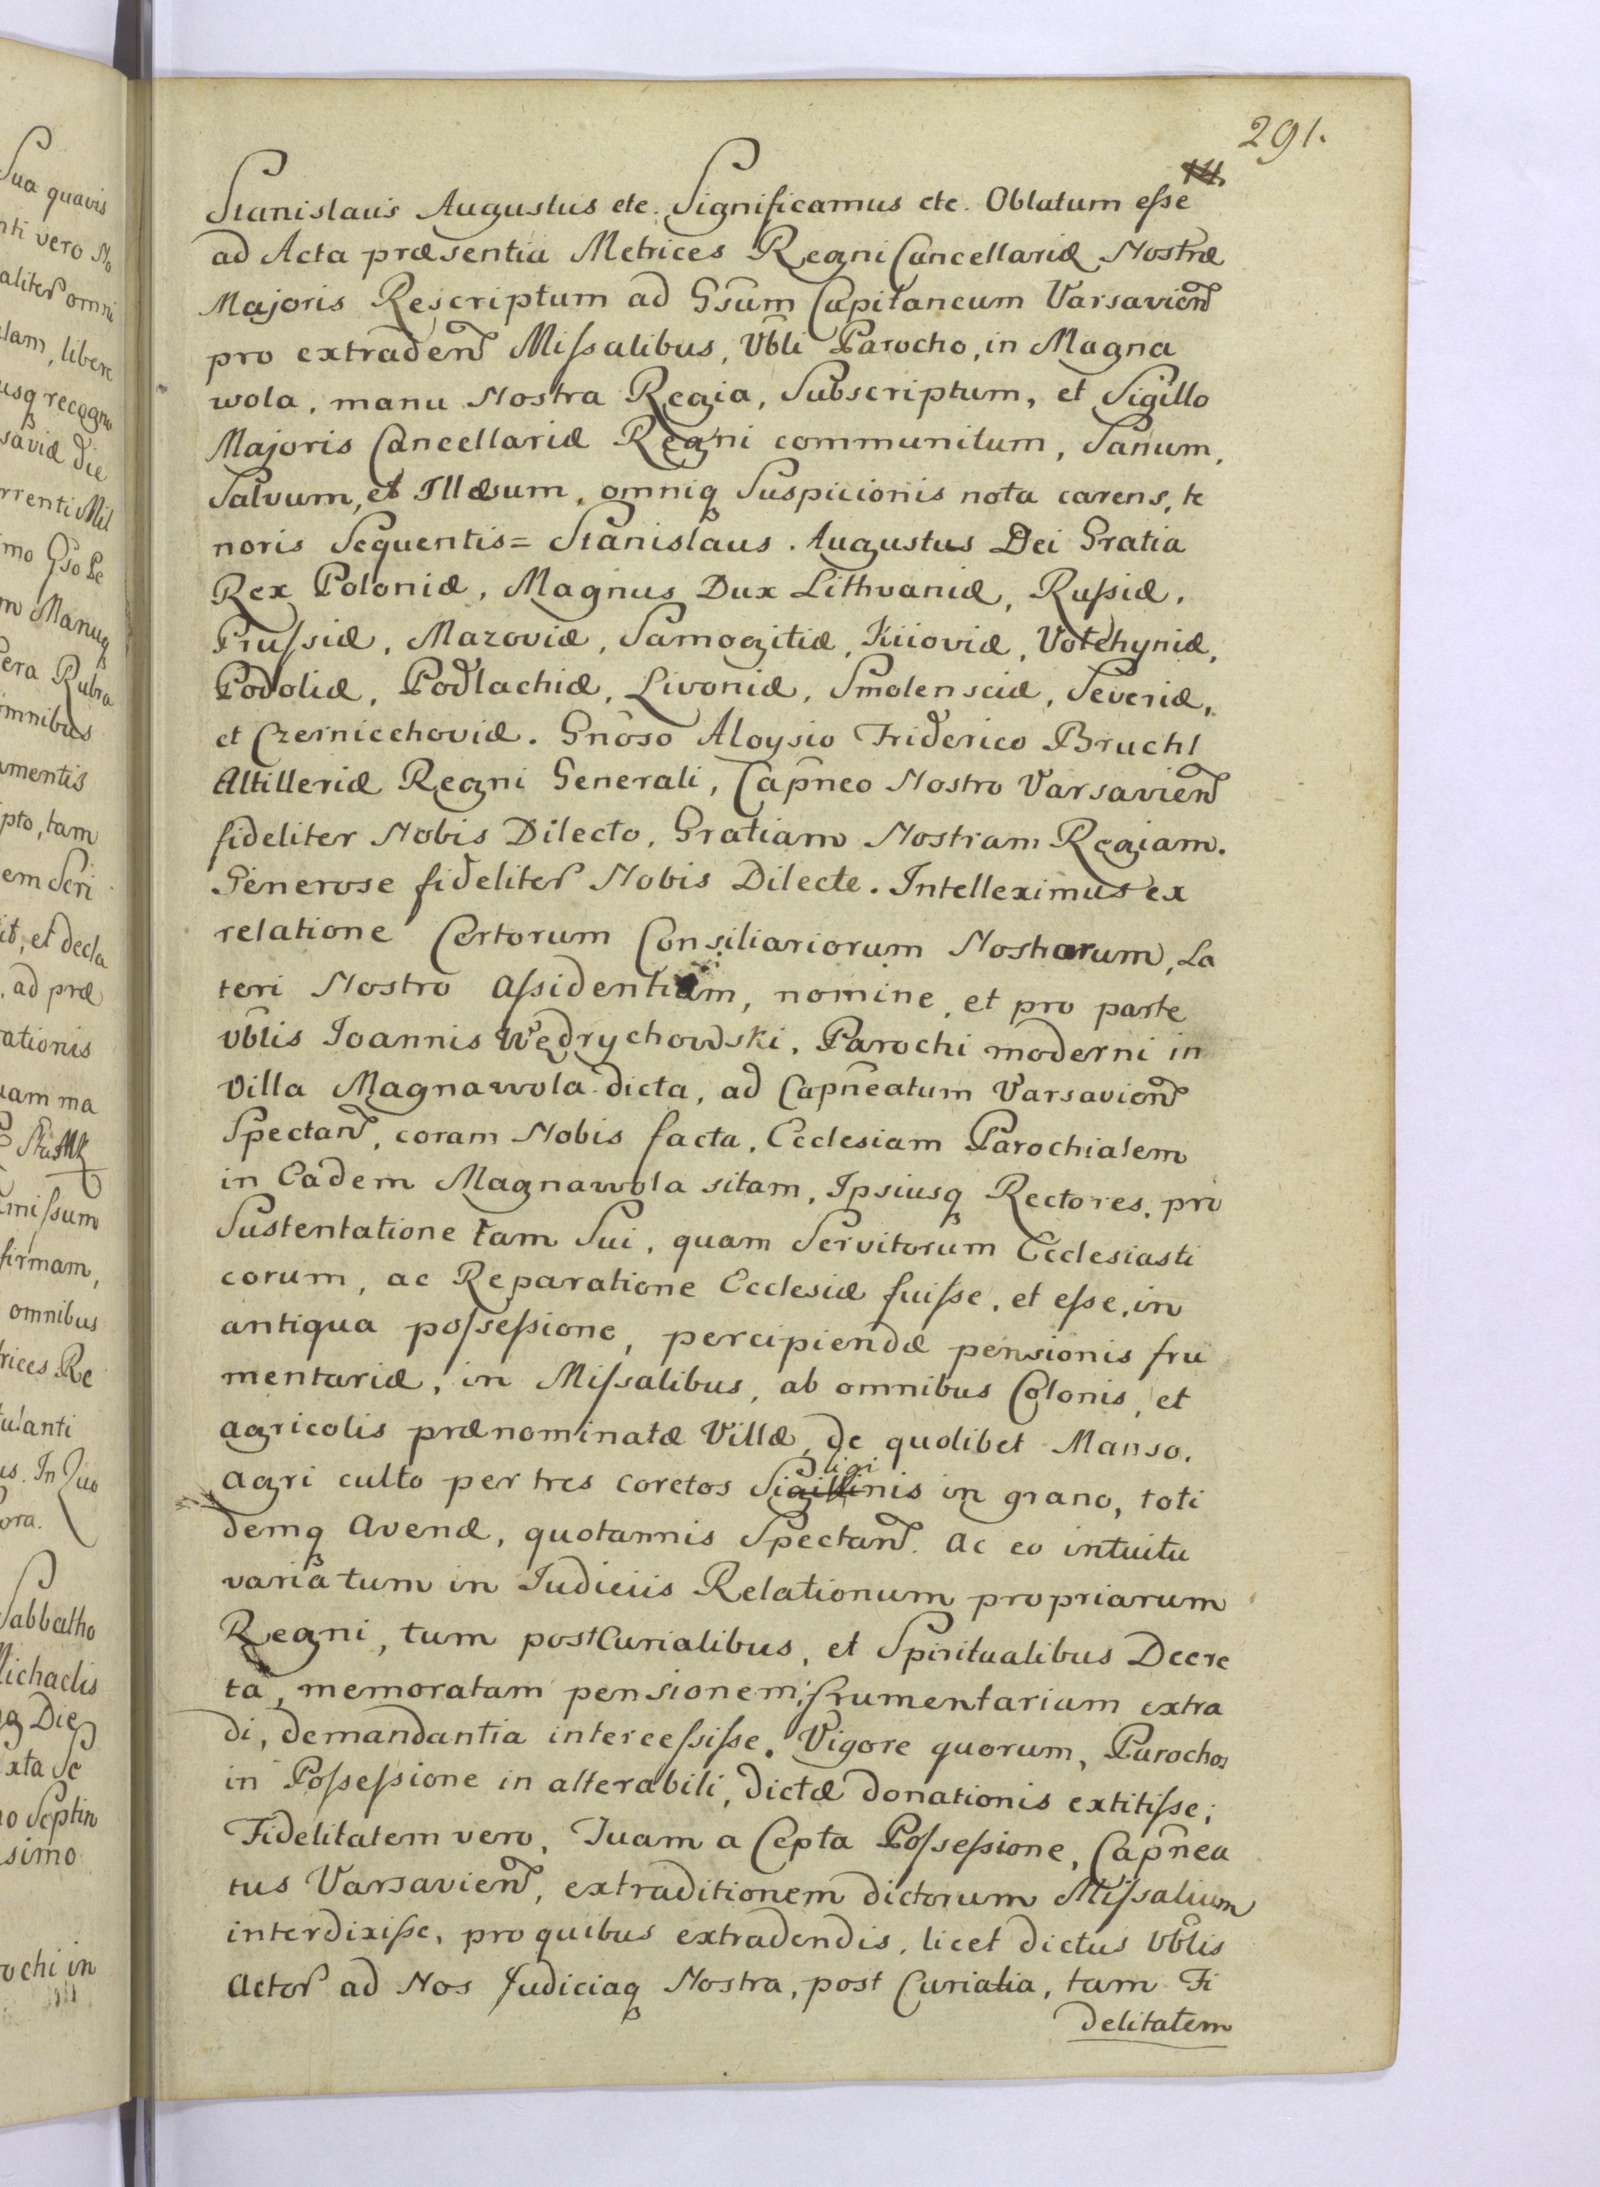 291.
Stanislaus Augustus etc. Significamus etc. Oblatum esse
ad Acta præsentia Metrices Regni Cancellariæ Nostræ
Majoris Rescriptum ad Gsum Capitaneum Varsavien
pro extraden Missalibus, Vbli Parocho, in Magna
wola, manu Nostra Regia, Subscriptum, et Sigillo
Majoris Cancellariæ Regni communitum, Sanum,
Salvum, et Illæsum, omniq Suspicionis nota carens, te
noris Sequentis = Stanislaus Augustus Dei Gratia
Rex Poloniæ, Magnus Dux Lithvaniæ, Russiæ,
Prussiæ, Mazoviæ, Samogitiæ, Kiioviæ, Volchyniæ,
Podoliæ, Podlachiæ, Livoniæ, Smolensciæ, Severiæ,
et Czerniechoviæ. Gnoso Aloysio Friderico Bruchl
Altilleriæ Regni Generali, Capneo Nostro Varsavien
fideliter Nobis Dilecto, Gratiam Nostram Regiam.
Generose fideliter Nobis Dilecte. Intelleximus ex
relatione Certorum Consiliariorum Nostrorum, La
teri Nostro Assidentium, nomine, et pro parte
Vblis Ioannis Wędrychowski, Parochi moderni in
Villa Magnawola dicta, ad Capneatum Varsavien
Spectan, coram Nobis facta, Ecclesiam Parochialem
in Eadem Magnawola sitam, Ipsiusq Rectores, pro
Sustentatione tam Sui, quam Servitorum Ecclesiasti
corum, ac Reparatione Ecclesiæ fuisse, et esse, in
antiqua possessione, percipiendæ pensionis fru
mentariæ, in Missalibus, ab omnibus Colonis, et
agricolis prænominatæ Villæ, de quolibet Manso,
agri culto per tres coretos Siliginis in grano, toti
demq Avenæ, quotannis Spectan. Ac eo intuitu
varia tum in Iudiciis Relationum propriarum
Regni, tum post Curialibus, et Spiritualibus Decre
ta, memoratam pensionem frumentariam extra
di, demandantia intercessisse. Vigore quorum, Parochos
in Possessione in alterabili, dictæ donationis extitisse;
Fidelitatem vero, Tuam a Cepta Possessione, Capnea
tus Varsavien, extraditionem dictorum Missalium
interdixisse, pro quibus extradendis, licet dictus Vblis
Actor ad Nos Judiciaq Nostra, post Curialia, tam Fi
delitatem